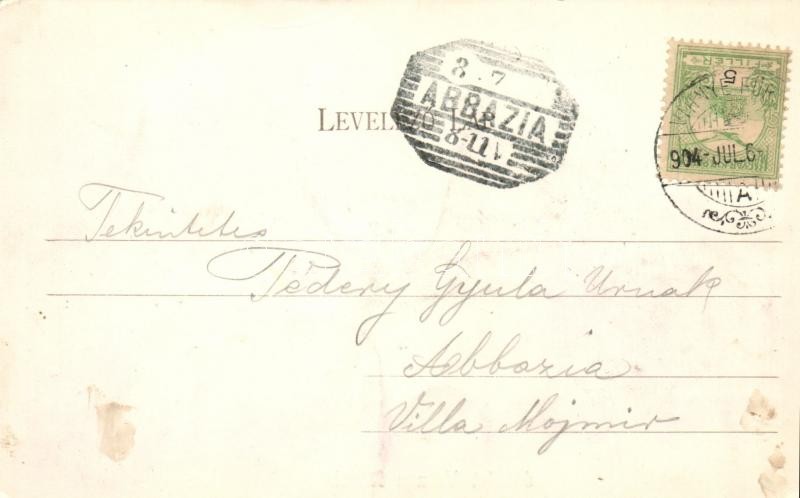 8.7
ABBAZIA
LEVELEZŐ LAP
5
FILLÉR
904-JUL.6
A
Tekintetes
Tédery Gyula Urnak
Abbazia
Villa Mojmir